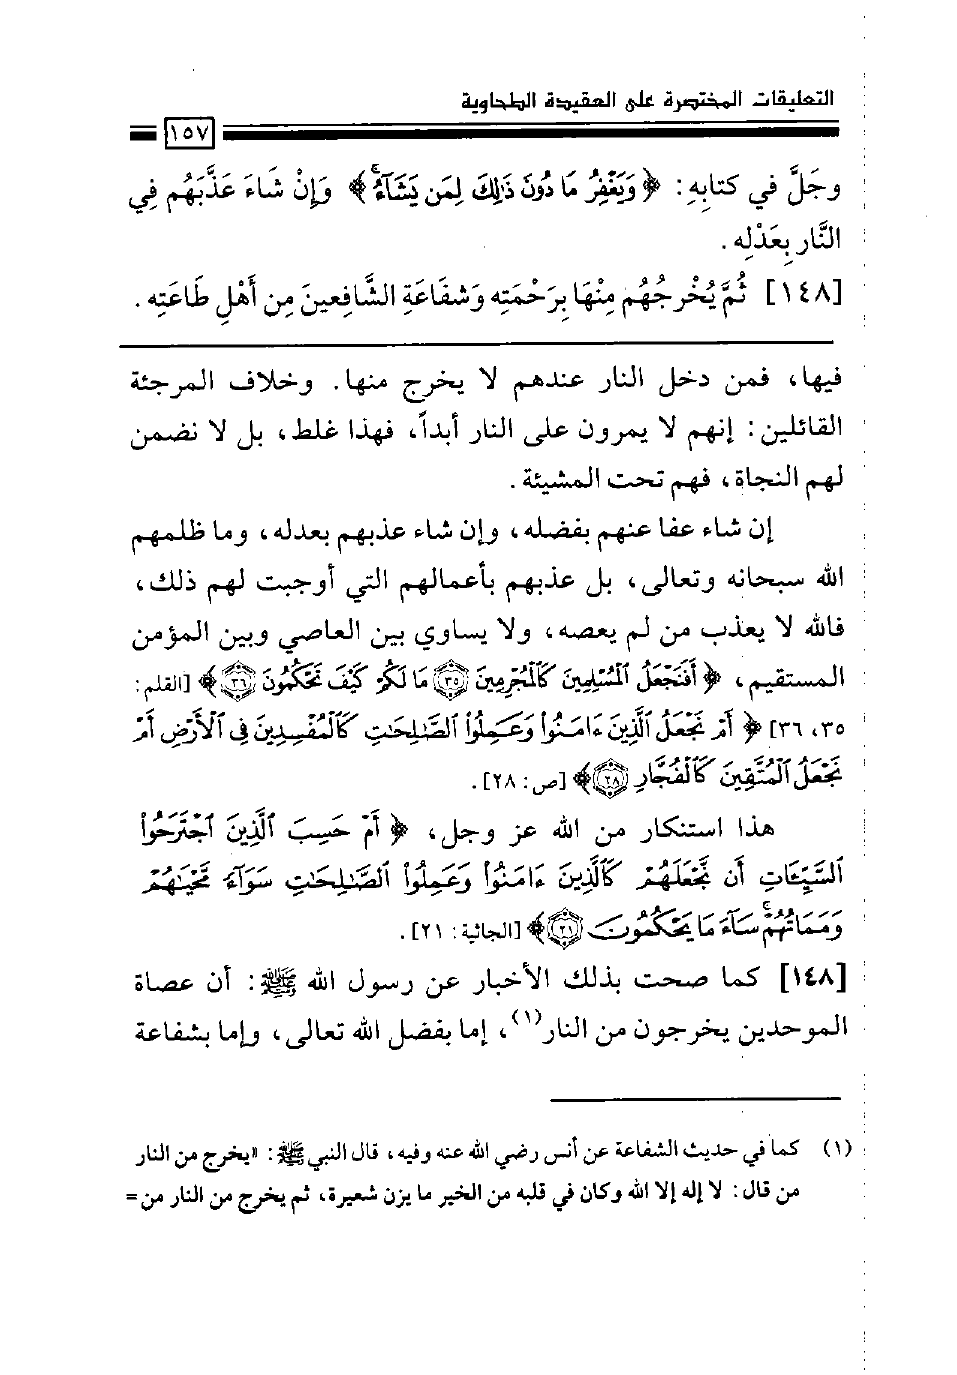 التعليقات المختصرة على العقيدة الطحاوية
١٥٧
وجَلَّ في كتابِهِ: ﴿وَيَغْفِرُ مَا دُونَ ذَٰلِكَ لِمَن يَشَآءُ﴾ وَإِنْ شَاءَ عَذَّبَهُم فِي
النَّار بِعَدْلِه.
[١٤٨] ثُمَّ يُخْرِجُهُم مِنْهَا بِرَحْمَتِه وَشفَاعَةِ الشَّافِعينَ مِن أَهْلِ طَاعَتِه.
فيها، فمن دخل النار عندهم لا يخرج منها. وخلاف المرجئة
القائلين: إنهم لا يمرون على النار أبداً، فهذا غلط، بل لا نضمن
لهم النجاة، فهم تحت المشيئة.
إن شاء عفا عنهم بفضله، وإن شاء عذبهم بعدله، وما ظلمهم
الله سبحانه وتعالى، بل عذبهم بأعمالهم التي أوجبت لهم ذلك،
فالله لا يعذب من لم يعصه، ولا يساوي بين العاصي وبين المؤمن
المستقيم، ﴿أَفَنَجْعَلُ ٱلْمُسْلِمِينَ كَٱلْمُجْرِمِينَ ٣٥ مَا لَكُمْ كَيْفَ تَحْكُمُونَ ٣٦﴾ [القلم:
٣٥، ٣٦] ﴿أَمْ نَجْعَلُ ٱلَّذِينَ ءَامَنُوا۟ وَعَمِلُوا۟ ٱلصَّٰلِحَٰتِ كَٱلْمُفْسِدِينَ فِى ٱلْأَرْضِ أَمْ
نَجْعَلُ ٱلْمُتَّقِينَ كَٱلْفُجَّارِ ٢٨﴾ [ص: ٢٨].
هذا استنكار من الله عز وجل، ﴿أَمْ حَسِبَ ٱلَّذِينَ ٱجْتَرَحُوا۟
ٱلسَّيِّـَٔاتِ أَن نَّجْعَلَهُمْ كَٱلَّذِينَ ءَامَنُوا۟ وَعَمِلُوا۟ ٱلصَّٰلِحَٰتِ سَوَآءً مَّحْيَاهُمْ
وَمَمَاتُهُمْ ۚ سَآءَ مَا يَحْكُمُونَ ٢١﴾ [الجاثية: ٢١].
[١٤٨] كما صحت بذلك الأخبار عن رسول الله ﷺ: أن عصاة
الموحدين يخرجون من النار(١)، إما بفضل الله تعالى، وإما بشفاعة
(١) كما في حديث الشفاعة عن أنس رضي الله عنه وفيه، قال النبي ﷺ: «يخرج من النار
من قال: لا إله إلا الله وكان في قلبه من الخير ما يزن شعيرة، ثم يخرج من النار من=